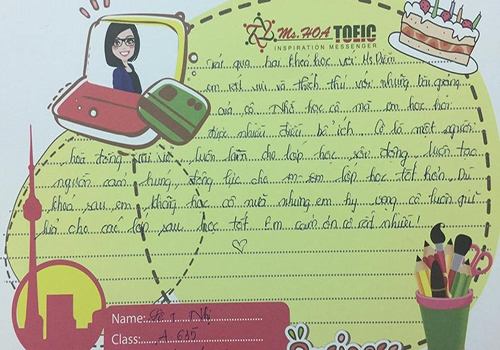 Ms. HOA TOEIC
INSPIRATION MESSENGER
Trải qua hai khoá học với Ms. Diễm
em rất vui và thích thú với những bài giảng
của cô. Nhờ học cô mà em học hỏi
được nhiều điều bổ ích. Cô là một người
hoà đồng, vui vẻ, luôn làm cho lớp học sôi động, luôn tạo
nguồn cảm hứng, động lực cho em lớp học tốt hơn. Dù
khoá sau em không học cô nữa nhưng em hy vọng cô luôn giữ
lửa cho các lớp sau học tốt. Em cảm ơn cô rất nhiều!
Name: Nhị
Class: A 635